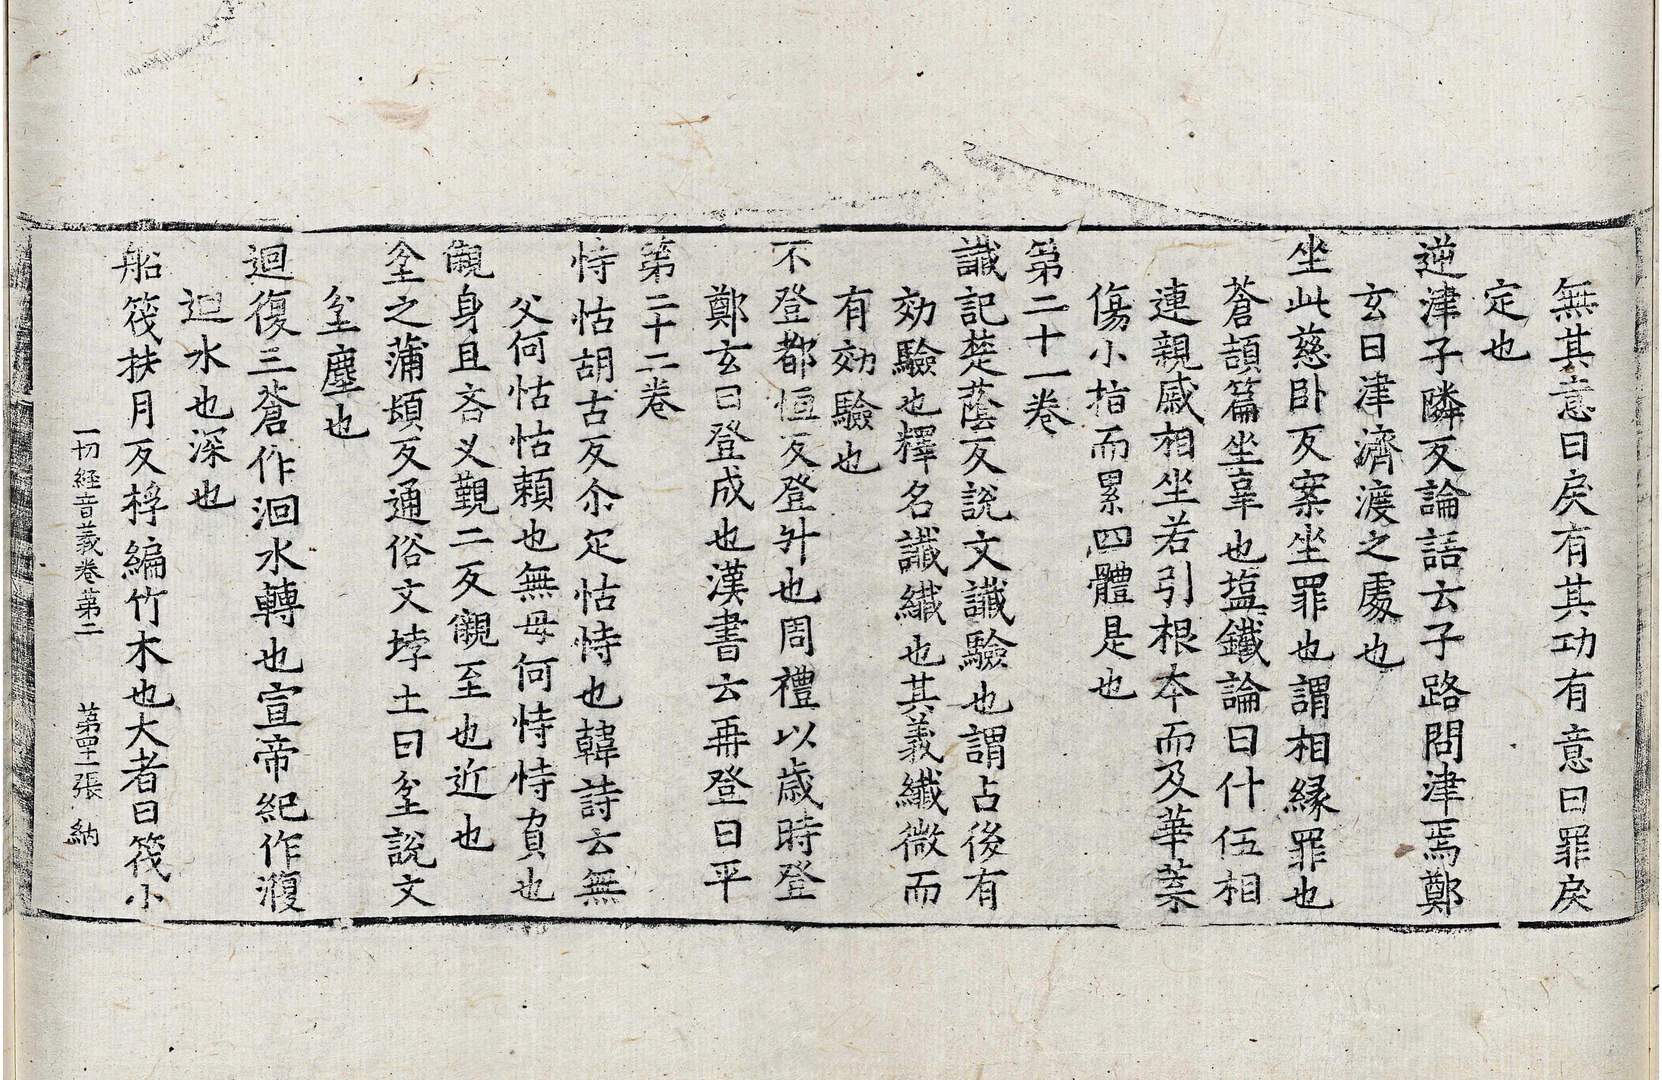 無其意曰戾有其功有意曰罪戾
定也
逆津子隣反論語云子路問津焉鄭
玄曰津濟渡之處也
坐此慈卧反案坐罪也謂相縁罪也
蒼頡篇坐辠也塩鐵論曰什伍相
連親戚相坐若引根本而及華葉
傷小指而累四體是也
第二十一卷
讖記楚蔭反說文讖驗也謂占後有
効驗也釋名讖纖也其義纖微而
有効驗也
不登都恒反登升也周禮以歳時登
鄭玄曰登成也漢書云再登曰平
第二十二卷
恃怙胡古反尒疋怙恃也韓詩云無
父何怙怙頼也無母何恃恃負也
儭身且吝义覲二反儭至也近也
坌之蒲頓反通俗文㘷土曰坌說文
坌塵也
迴復三蒼作洄水轉也宣帝紀作澓
迴水也深也
船筏扶月反桴編竹木也大者曰筏小
一切経音義卷第二　第四十一張　納